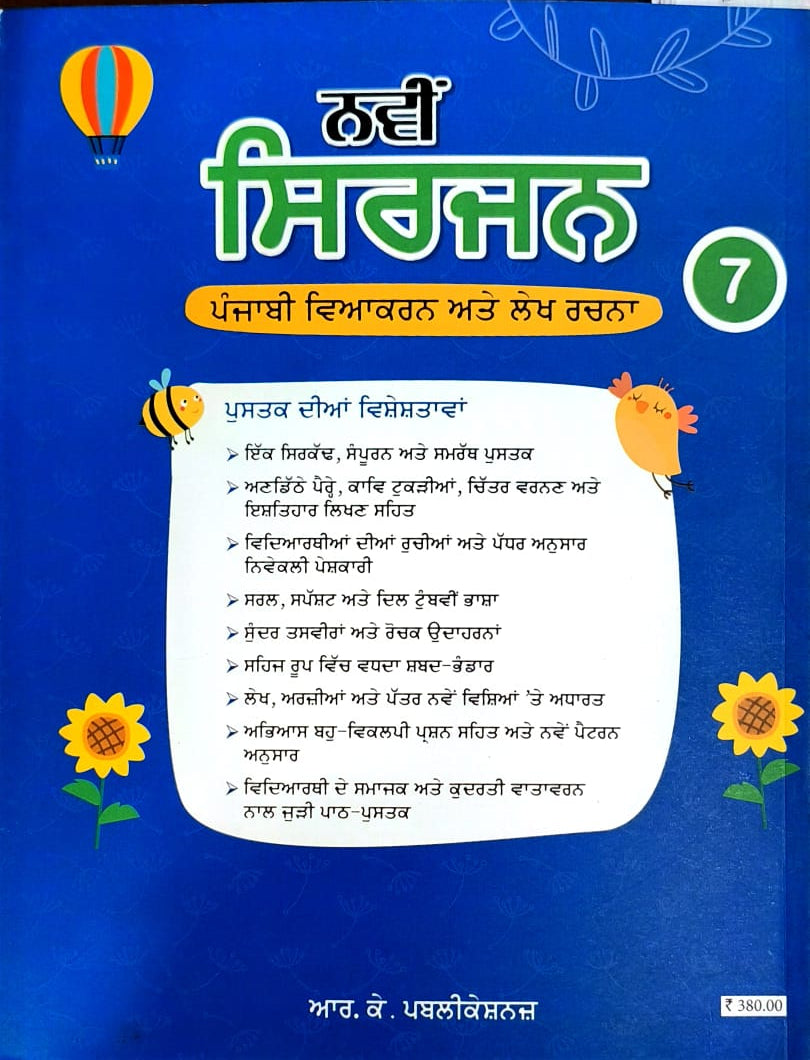 ਨਵੀਂ
ਸਿਰਜਨ
7
ਪੰਜਾਬੀ ਵਿਆਕਰਨ ਅਤੇ ਲੇਖ ਰਚਨਾ
ਪੁਸਤਕ ਦੀਆਂ ਵਿਸ਼ੇਸ਼ਤਾਵਾਂ
➢ ਇੱਕ ਸਿਰਕੱਢ, ਸੰਪੂਰਨ ਅਤੇ ਸਮਰੱਥ ਪੁਸਤਕ
➢ ਅਣਡਿੱਠੇ ਪੈਰ੍ਹੇ, ਕਾਵਿ ਟੁਕੜੀਆਂ, ਚਿੱਤਰ ਵਰਨਣ ਅਤੇ
ਇਸ਼ਤਿਹਾਰ ਲਿਖਣ ਸਹਿਤ
➢ ਵਿਦਿਆਰਥੀਆਂ ਦੀਆਂ ਰੁਚੀਆਂ ਅਤੇ ਪੱਧਰ ਅਨੁਸਾਰ
ਨਿਵੇਕਲੀ ਪੇਸ਼ਕਾਰੀ
➢ ਸਰਲ, ਸਪੱਸ਼ਟ ਅਤੇ ਦਿਲ ਟੁੰਬਵੀਂ ਭਾਸ਼ਾ
➢ ਸੁੰਦਰ ਤਸਵੀਰਾਂ ਅਤੇ ਰੋਚਕ ਉਦਾਹਰਨਾਂ
➢ ਸਹਿਜ ਰੂਪ ਵਿੱਚ ਵਧਦਾ ਸ਼ਬਦ-ਭੰਡਾਰ
➢ ਲੇਖ, ਅਰਜ਼ੀਆਂ ਅਤੇ ਪੱਤਰ ਨਵੇਂ ਵਿਸ਼ਿਆਂ 'ਤੇ ਅਧਾਰਤ
➢ ਅਭਿਆਸ ਬਹੁ-ਵਿਕਲਪੀ ਪ੍ਰਸ਼ਨ ਸਹਿਤ ਅਤੇ ਨਵੇਂ ਪੈਟਰਨ
ਅਨੁਸਾਰ
➢ ਵਿਦਿਆਰਥੀ ਦੇ ਸਮਾਜਕ ਅਤੇ ਕੁਦਰਤੀ ਵਾਤਾਵਰਨ
ਨਾਲ ਜੁੜੀ ਪਾਠ-ਪੁਸਤਕ
ਆਰ. ਕੇ. ਪਬਲੀਕੇਸ਼ਨਜ਼
₹ 380.00